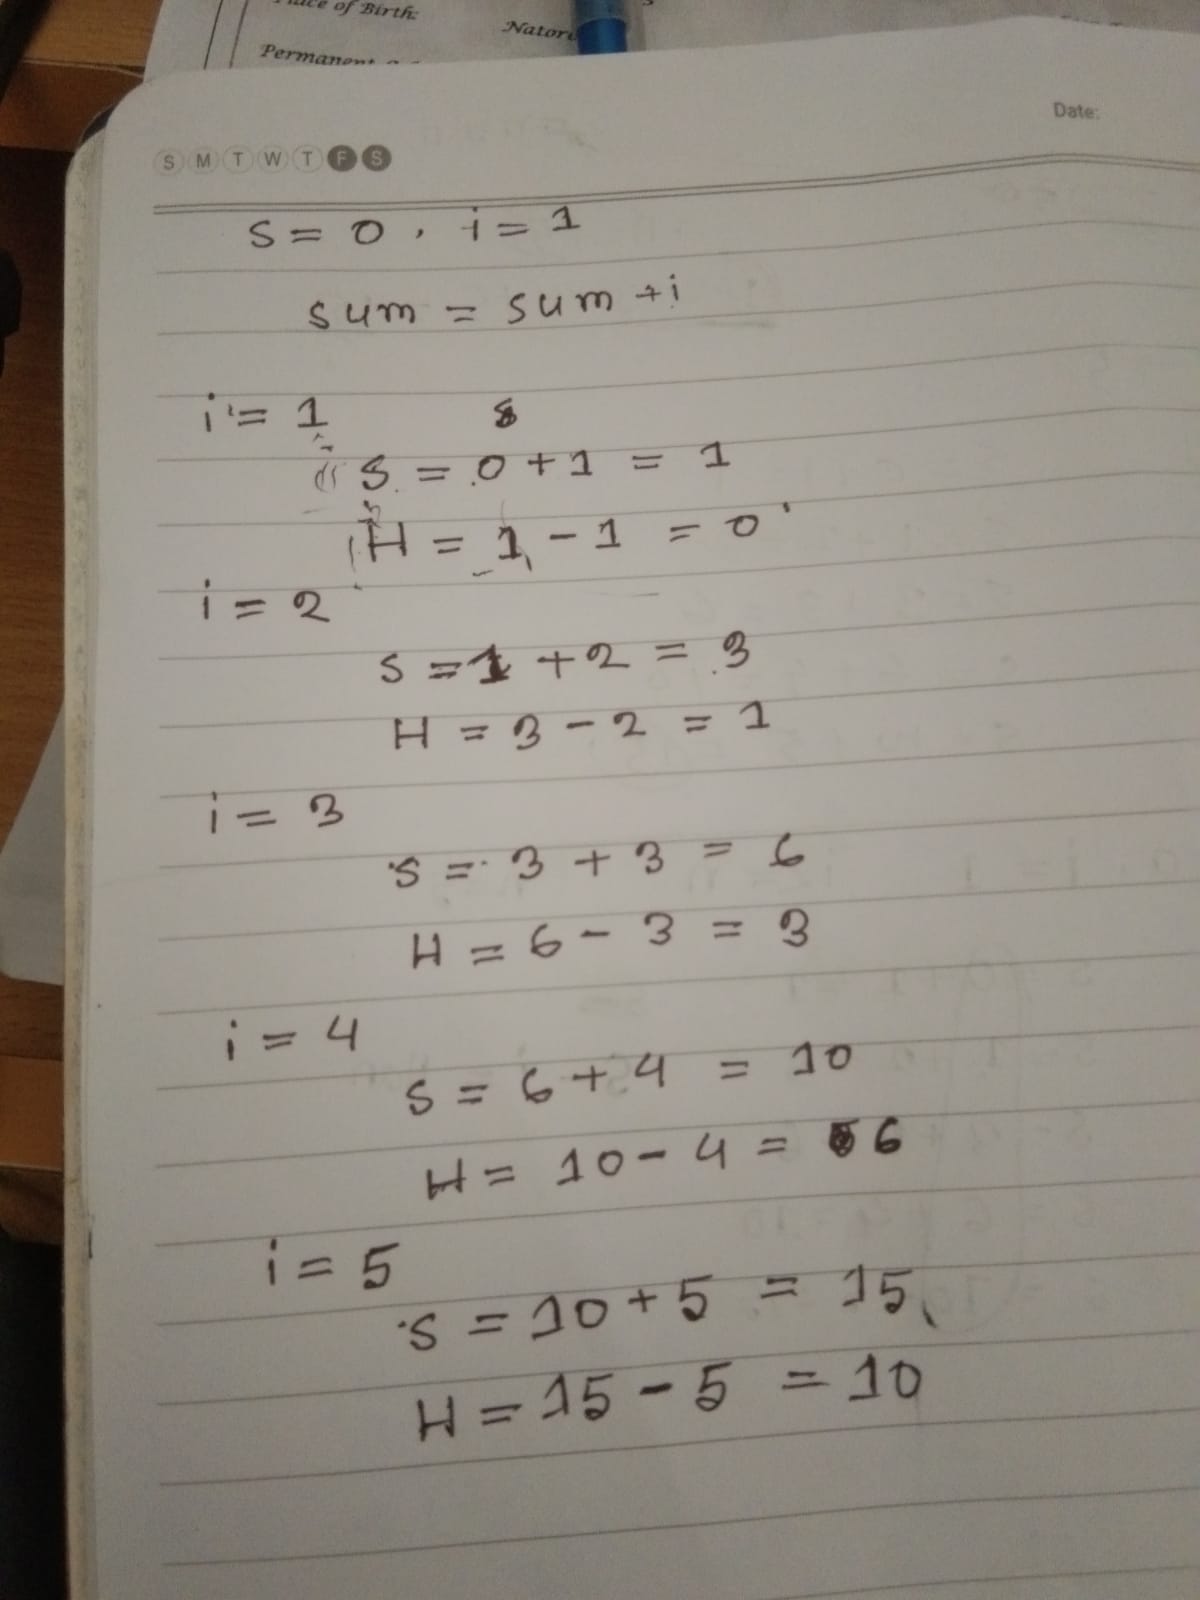 of Birth:
Permanent
Date:
S M T W T F S
S = 0 , i = 1
sum = sum + i
i = 1
S = 0 + 1 = 1
H = 1 - 1 = 0
i = 2
S = 1 + 2 = 3
H = 3 - 2 = 1
i = 3
S = 3 + 3 = 6
H = 6 - 3 = 3
i = 4
S = 6 + 4 = 10
H = 10 - 4 = 6
i = 5
S = 10 + 5 = 15
H = 15 - 5 = 10